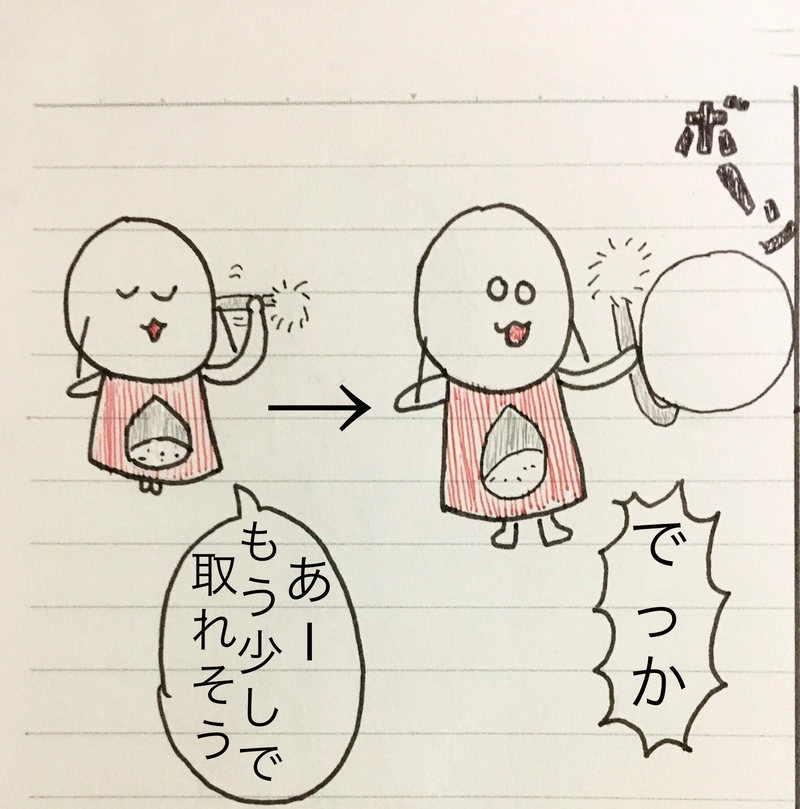 あー
もう少しで
取れそう
ボーン
でっか